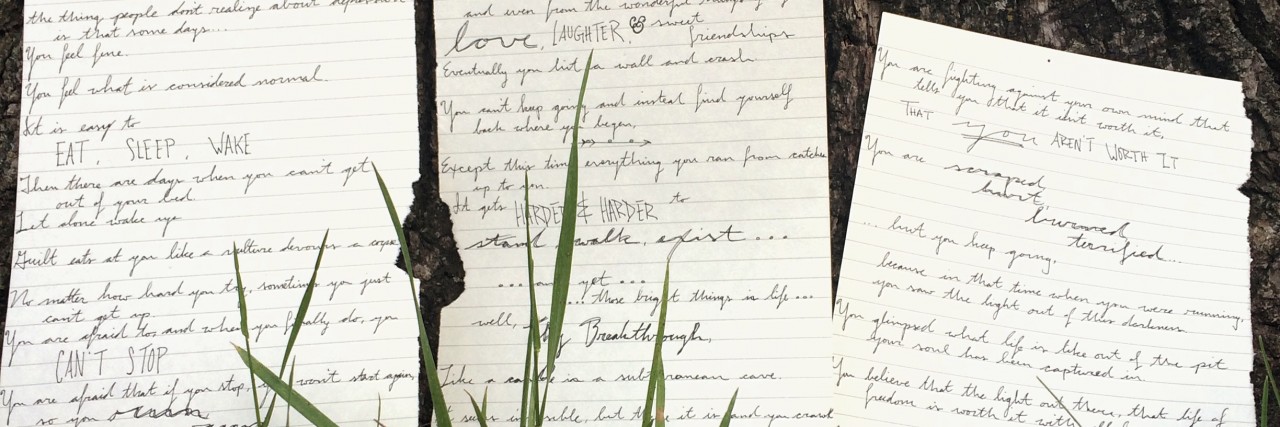 the thing people don't realize about
is that some days...
You feel fine.
You feel what is considered normal.
It is easy to
EAT, SLEEP, WAKE
Then there are days when you can't get
out of your bed.
Let alone wake up
Guilt eats at you like a vulture devours a
No matter how hard you try, sometimes you just
can't get up.
You are afraid to, and when you finally do, you
CAN'T STOP
You are afraid that if you stop, won't start again,
so you
and even from the wonderful things of
love, LAUGHTER, & sweet
friendships
Eventually you hit a wall and crash.
You can't keep going and instead find yourself
back where you began.
Except this time everything you ran from catches
up to you.
It gets HARDER & HARDER to
stand, walk, exist ...
.... and yet ...
... those bright things in life ...
well, they Breakthrough.
Like a candle in a subterranean cave.
It seems impossible, but there it is and you crawl
You are fighting against your own mind that
tells you that it isn't worth it,
THAT you AREN'T WORTH IT
You are scraped
hurt,
burned
terrified...
... but you keep going.
because in that time when you were running,
you saw the light out of this darkness
You glimpsed what life is like out of the pit
your soul has been captured in.
You believe that the light out there, that life of
freedom is worth it with